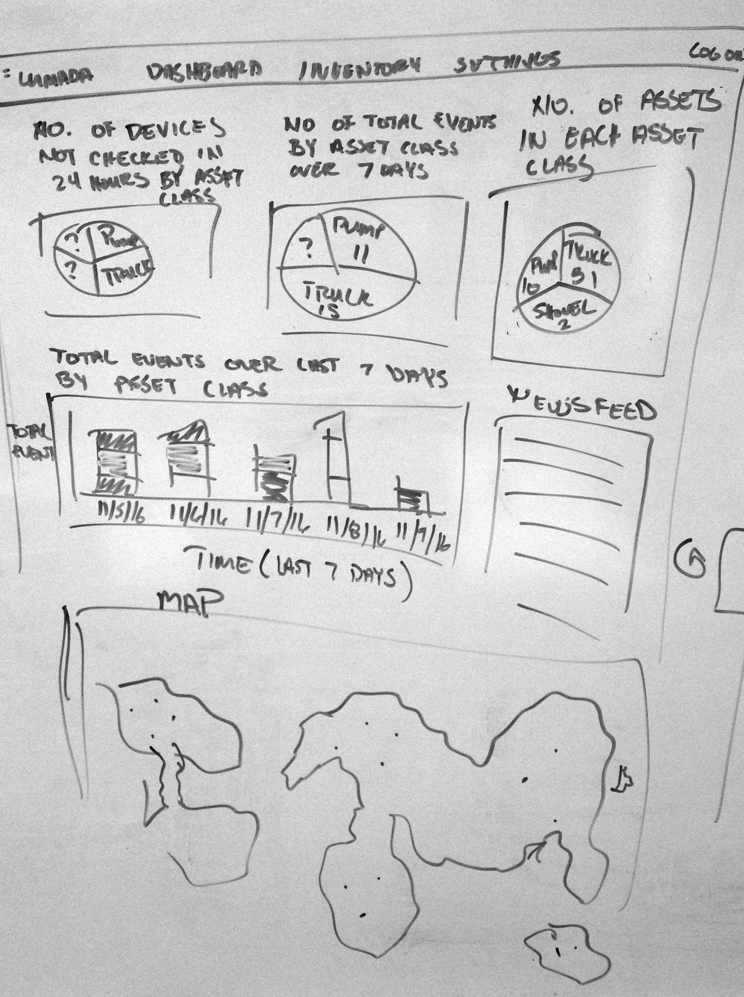 LUMADA DASHBOARD INVENTORY SETTINGS LOG OU
NO. OF DEVICES
NOT CHECKED IN
24 HOURS BY ASSET
CLASS
NO OF TOTAL EVENTS
BY ASSET CLASS
OVER 7 DAYS
NO. OF ASSETS
IN EACH ASSET
CLASS
? PUMP
? TRUCK
? PUMP
11
TRUCK
15
PUMP
10
TRUCK
51
SHOVEL
2
TOTAL EVENTS OVER LAST 7 DAYS
BY ASSET CLASS
TOTAL
EVENT
11/5/16 11/6/16 11/7/16 11/8/16 11/9/16
TIME (LAST 7 DAYS)
NEWSFEED
MAP